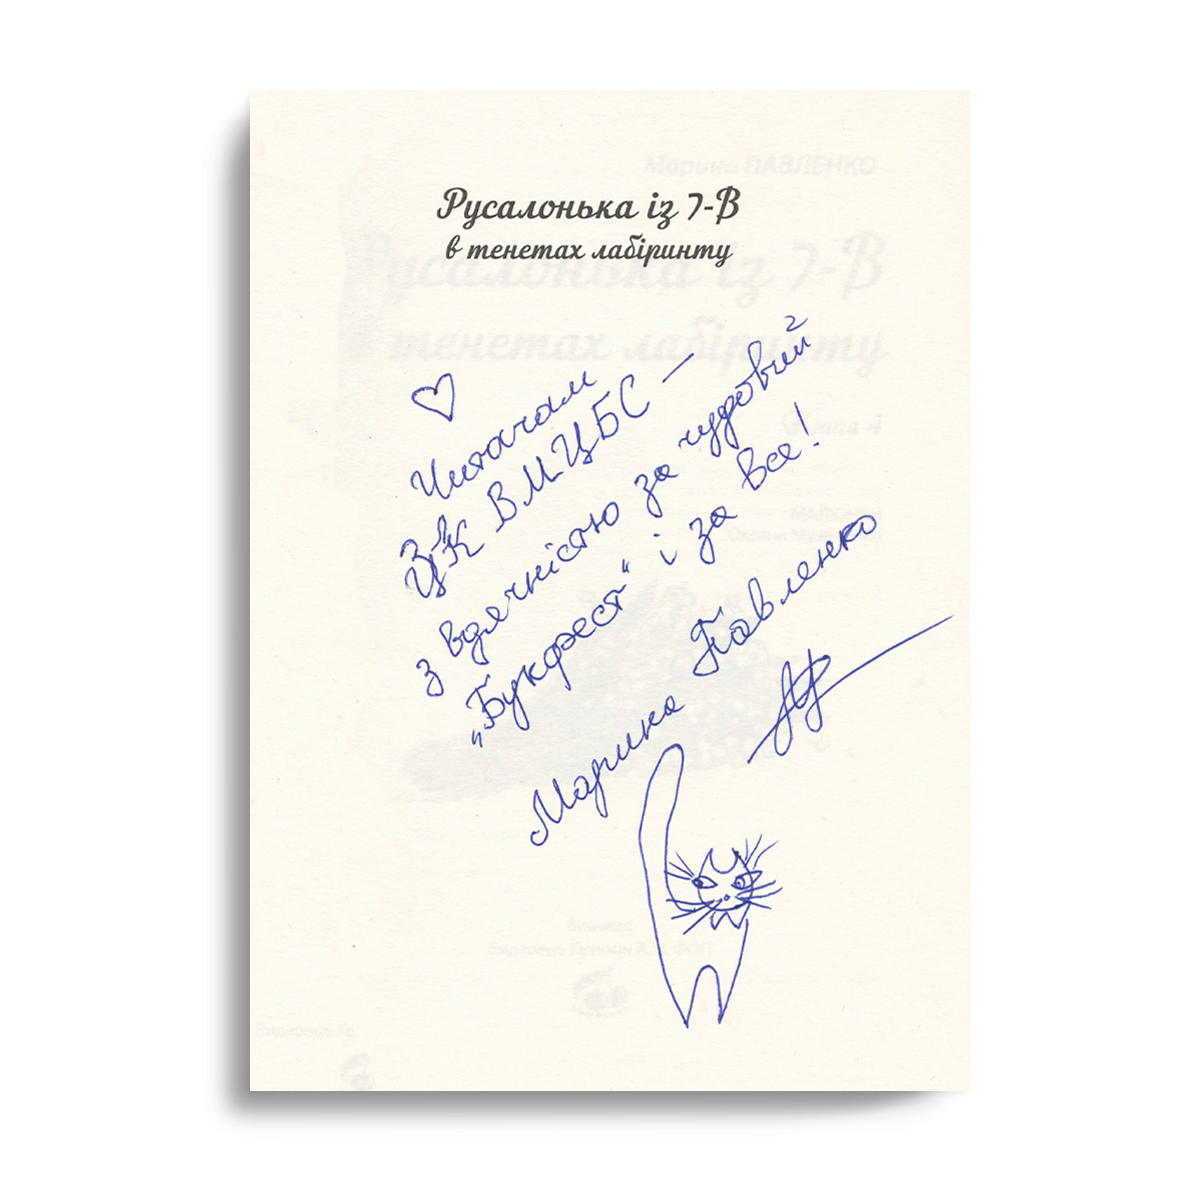 Марина ПАВЛЕНКО
Русалонька із 7-В
в тенетах лабіринту
Читачам
ЦК ВМЦБС –
з вдячністю за чудовий
„Букфест“ і за все!
Марина Павленко